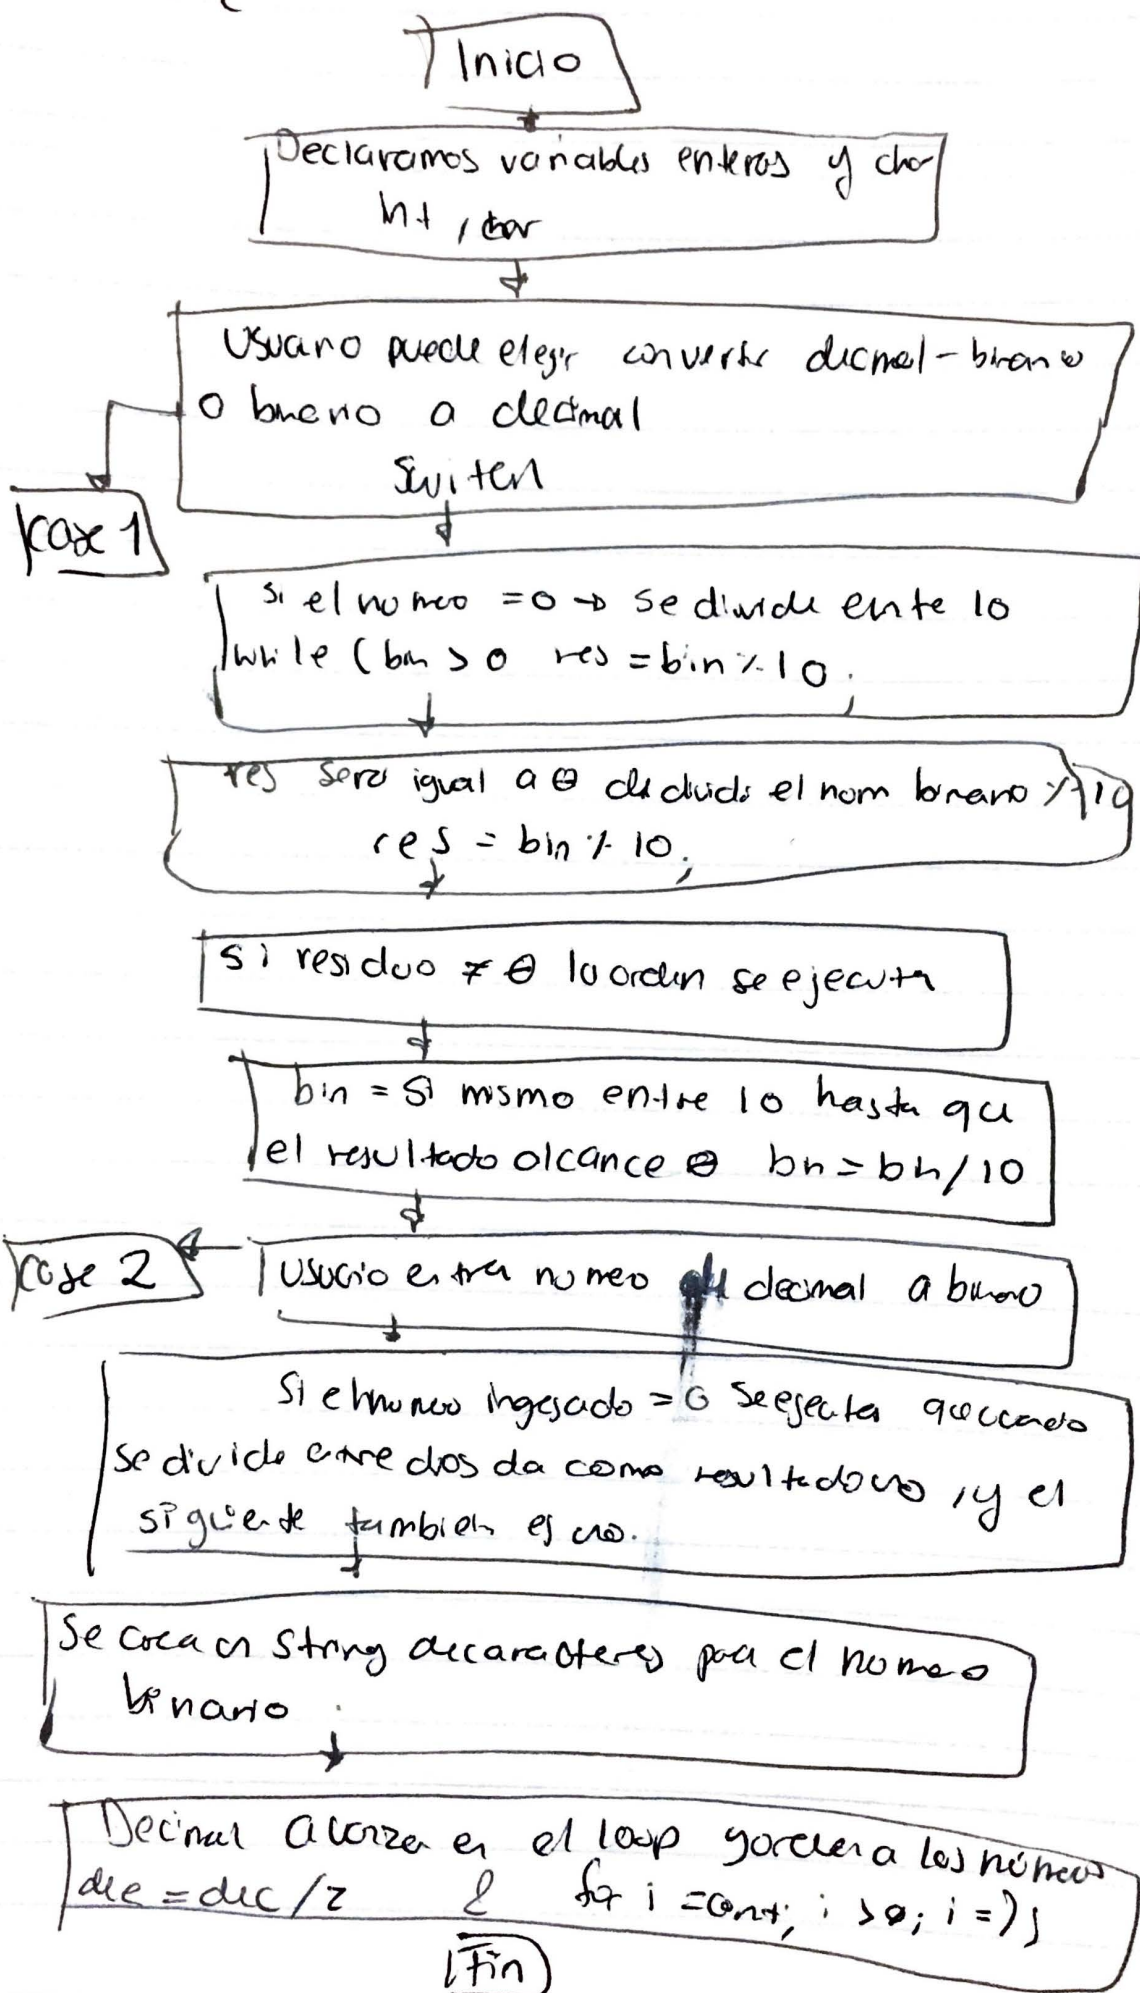 Inicio
Declaramos variables enteros y char
int, char
Usuario puede elegir convertir decimal-binario
o binario a decimal
Switch
case 1
si el numero =0 → se divide entre 10
while (bin > 0 res = bin % 10;
res sera igual a 0 el num binario % 10
res = bin % 10;
si residuo ≠ 0 la orden se ejecuta
bin = si mismo entre 10 hasta que
el resultado alcance 0 bin = bin/10
case 2
usuario entra numero decimal a binario
Si el numero ingresado = 0 se ejecuta que cuando
se divide entre dos da como resultado uno, y el
siguiente tambien es uno.
Se crea un String de caracteres para el numero
binario
Decimal avanza en el loop y ordena los números
dec = dec/2 & for i = cont; i > 0; i = );
Fin